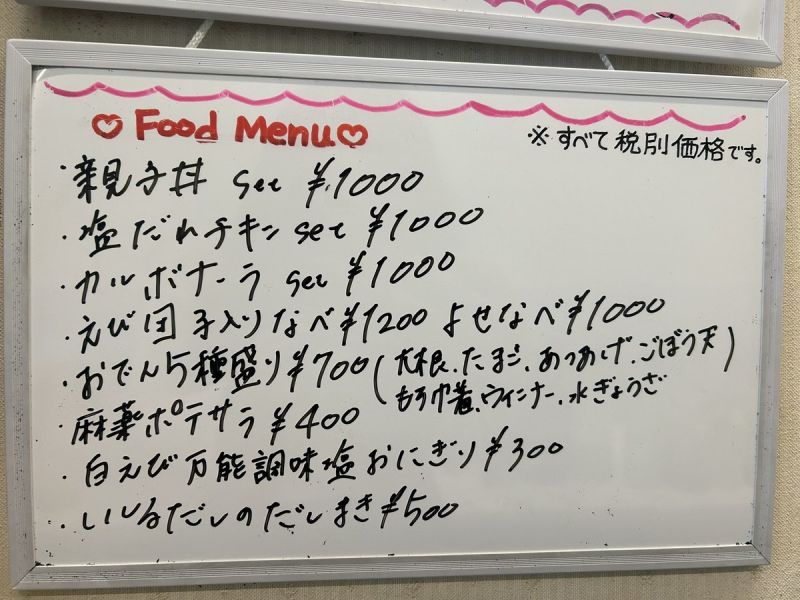 ♡ Food Menu ♡
※ すべて税別価格です。
・親子丼 set ¥1000
・塩だれチキン set ¥1000
・カルボナーラ set ¥1000
・えび団子入りなべ ¥1200 よせなべ ¥1000
・おでん5種盛り ¥700 (大根、たまご、あつあげ、ごぼう天
もち巾着、ウィンナー、水ぎょうざ)
・麻薬ポテサラ ¥400
・白えび万能調味塩おにぎり ¥300
・いしるだしのだしまき ¥500